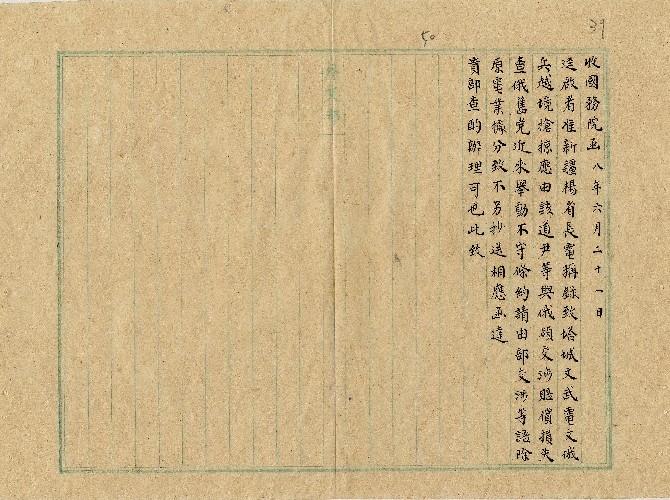 39
50
收國務院函 八年六月二十一日
逕啟者准新疆楊省長電稱錄致塔城文武電文俄
兵越境搶掠應由該道尹等與俄領交涉賠償損失
查俄舊党近來舉動不守條約請由部交涉等語除
原電業據分致不另抄送相應函達
貴部查酌辦理可也此致